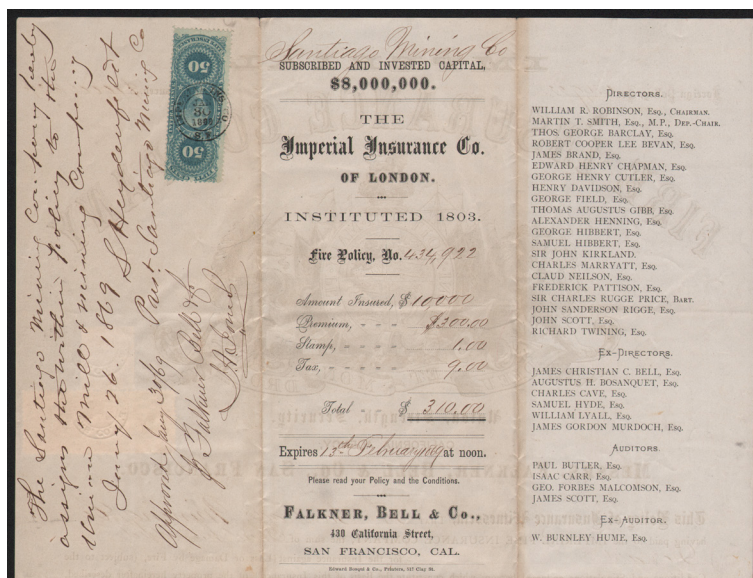 The Santiago Mining Company hereby
assigns the within policy to the
Union Mill & mining Company
Jany 26. 1869 S Heydenfeldt
Prest Santiago Mining Co
Approved Jany 30/69
Falkner Bell & Co
50
50
Santiago Mining Co
SUBSCRIBED AND INVESTED CAPITAL,
$8,000,000.
THE
Imperial Insurance Co.
OF LONDON.
INSTITUTED 1803.
Fire Policy, No. 434,922
Amount Insured, $ 10000
Premium, - - - $300.00
Stamp, - - - 1.00
Tax, - - - 9.00
Total $ 310.00
Expires 13th February /69 at noon.
Please read your Policy and the Conditions.
FALKNER, BELL & Co.,
430 California Street,
SAN FRANCISCO, CAL.
Edward Bosqui & Co., Printers, 517 Clay St.
DIRECTORS.
WILLIAM R. ROBINSON, Esq., CHAIRMAN.
MARTIN T. SMITH, Esq., M.P., DEP.-CHAIR.
THOS. GEORGE BARCLAY, Esq.
ROBERT COOPER LEE BEVAN, Esq.
JAMES BRAND, Esq.
EDWARD HENRY CHAPMAN, Esq.
GEORGE HENRY CUTLER, Esq.
HENRY DAVIDSON, Esq.
GEORGE FIELD, Esq.
THOMAS AUGUSTUS GIBB, Esq.
ALEXANDER HENNING, Esq.
GEORGE HIBBERT, Esq.
SAMUEL HIBBERT, Esq.
SIR JOHN KIRKLAND.
CHARLES MARRYATT, Esq.
CLAUD NEILSON, Esq.
FREDERICK PATTISON, Esq.
SIR CHARLES RUGGE PRICE, Bart.
JOHN SANDERSON RIGGE, Esq.
JOHN SCOTT, Esq.
RICHARD TWINING, Esq.
EX-DIRECTORS.
JAMES CHRISTIAN C. BELL, Esq.
AUGUSTUS H. BOSANQUET, Esq.
CHARLES CAVE, Esq.
SAMUEL HYDE, Esq.
WILLIAM LYALL, Esq.
JAMES GORDON MURDOCH, Esq.
AUDITORS.
PAUL BUTLER, Esq.
ISAAC CARR, Esq.
GEO. FORBES MALCOMSON, Esq.
JAMES SCOTT, Esq.
EX-AUDITOR.
W. BURNLEY HUME, Esq.